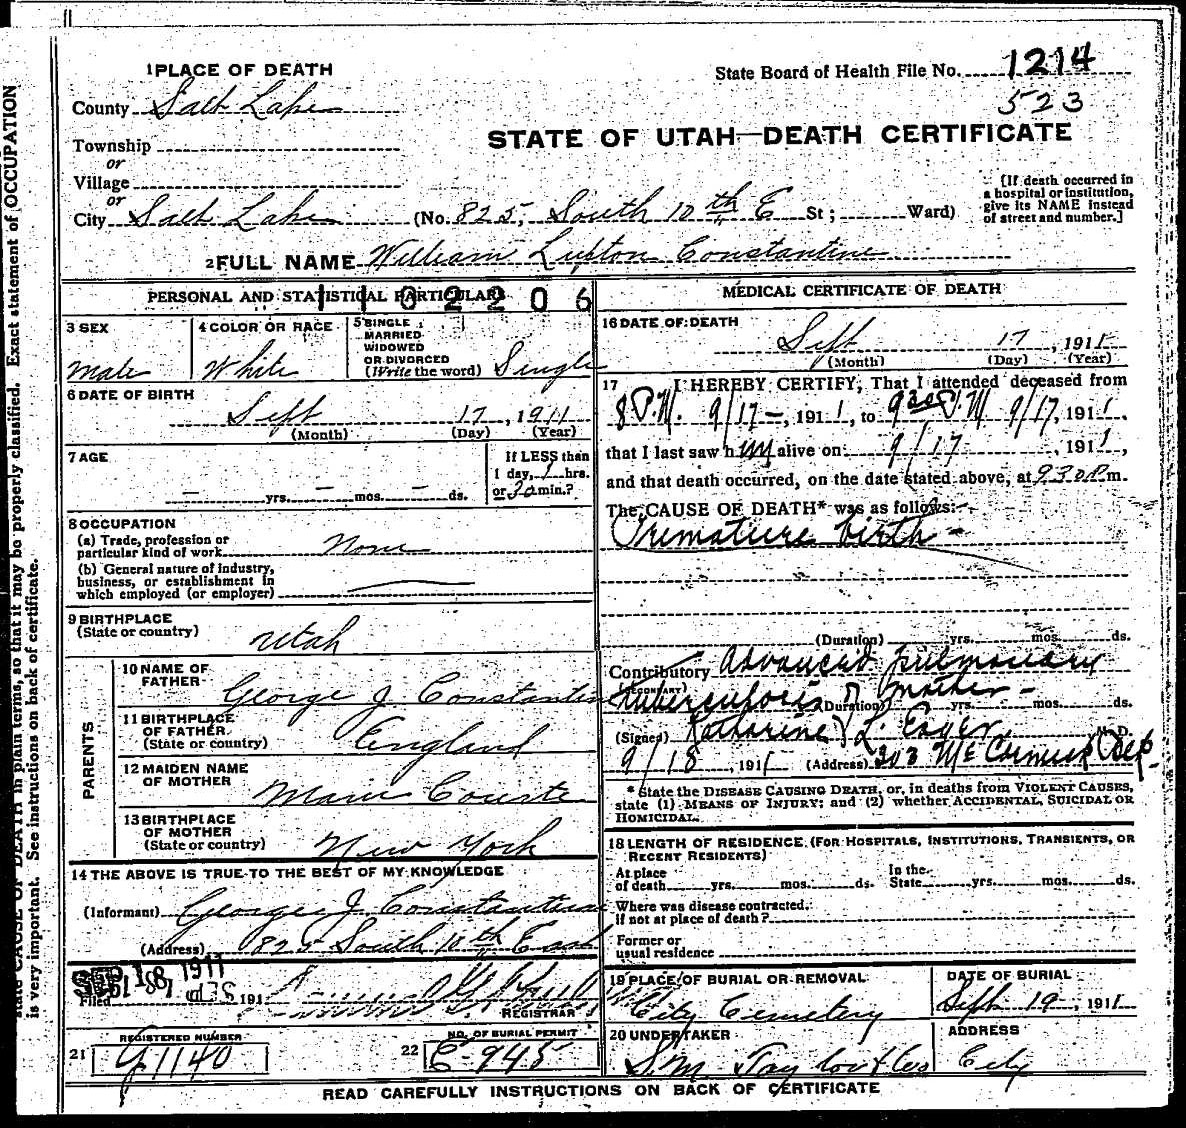 State CAUSE OF DEATH in plain terms, so that it may be properly classified. Exact statement of OCCUPATION
is very important. See instructions on back of certificate.
1 PLACE OF DEATH
State Board of Health File No. 1214
523
County Salt Lake
STATE OF UTAH—DEATH CERTIFICATE
Township
or
Village
or
City Salt Lake (No. 825, South 10th E St; Ward)
[If death occurred in
a hospital or institution,
give its NAME instead
of street and number.]
2 FULL NAME William Lupton Constantine
PERSONAL AND STATISTICAL PARTICULARS
1102206
3 SEX
Male
4 COLOR OR RACE
White
5 SINGLE
MARRIED
WIDOWED
OR DIVORCED
(Write the word) Single
6 DATE OF BIRTH
Sept 17, 1911
(Month) (Day) (Year)
7 AGE
— yrs. — mos. — ds.
If LESS than
1 day, 1 hrs.
or 30 min.?
8 OCCUPATION
(a) Trade, profession or
particular kind of work None
(b) General nature of industry,
business, or establishment in
which employed (or employer)
9 BIRTHPLACE
(State or country)
Utah
PARENTS
10 NAME OF
FATHER
George J. Constantine
11 BIRTHPLACE
OF FATHER
(State or country)
England
12 MAIDEN NAME
OF MOTHER
Marie
13 BIRTHPLACE
OF MOTHER
(State or country)
New York
14 THE ABOVE IS TRUE TO THE BEST OF MY KNOWLEDGE
(Informant) George J. Constantine
(Address) 825 South 10th East
SEP 18 1911
Filed 191
REGISTRAR
REGISTERED NUMBER
21 G 1140
NO. OF BURIAL PERMIT
22 E-945
MEDICAL CERTIFICATE OF DEATH
16 DATE OF DEATH
Sept 17, 1911
(Month) (Day) (Year)
17 I HEREBY CERTIFY, That I attended deceased from
8 P.M. 9/17—, 1911, to 9 30 P.M 9/17, 1911,
that I last saw him alive on 9/17, 1911,
and that death occurred, on the date stated above, at 930 P m.
The CAUSE OF DEATH* was as follows:
Premature birth—
(Duration) yrs. mos. ds.
Contributory Advanced pulmonary
(SECONDARY)
tuberculosis of mother—
(Duration) yrs. mos. ds.
(Signed) Katharine L. M. D.
9/18, 1911 (Address) 203 McCornick Bldg
* State the DISEASE CAUSING DEATH, or, in deaths from VIOLENT CAUSES,
state (1) MEANS OF INJURY; and (2) whether ACCIDENTAL, SUICIDAL OR
HOMICIDAL.
18 LENGTH OF RESIDENCE (FOR HOSPITALS, INSTITUTIONS, TRANSIENTS, OR
RECENT RESIDENTS)
At place
of death yrs. mos. ds.
In the
State yrs. mos. ds.
Where was disease contracted,
if not at place of death?
Former or
usual residence
19 PLACE OF BURIAL OR REMOVAL
City Cemetery
DATE OF BURIAL
Sept 19, 1911
20 UNDERTAKER
S.M. Taylor & Co
ADDRESS
City
READ CAREFULLY INSTRUCTIONS ON BACK OF CERTIFICATE